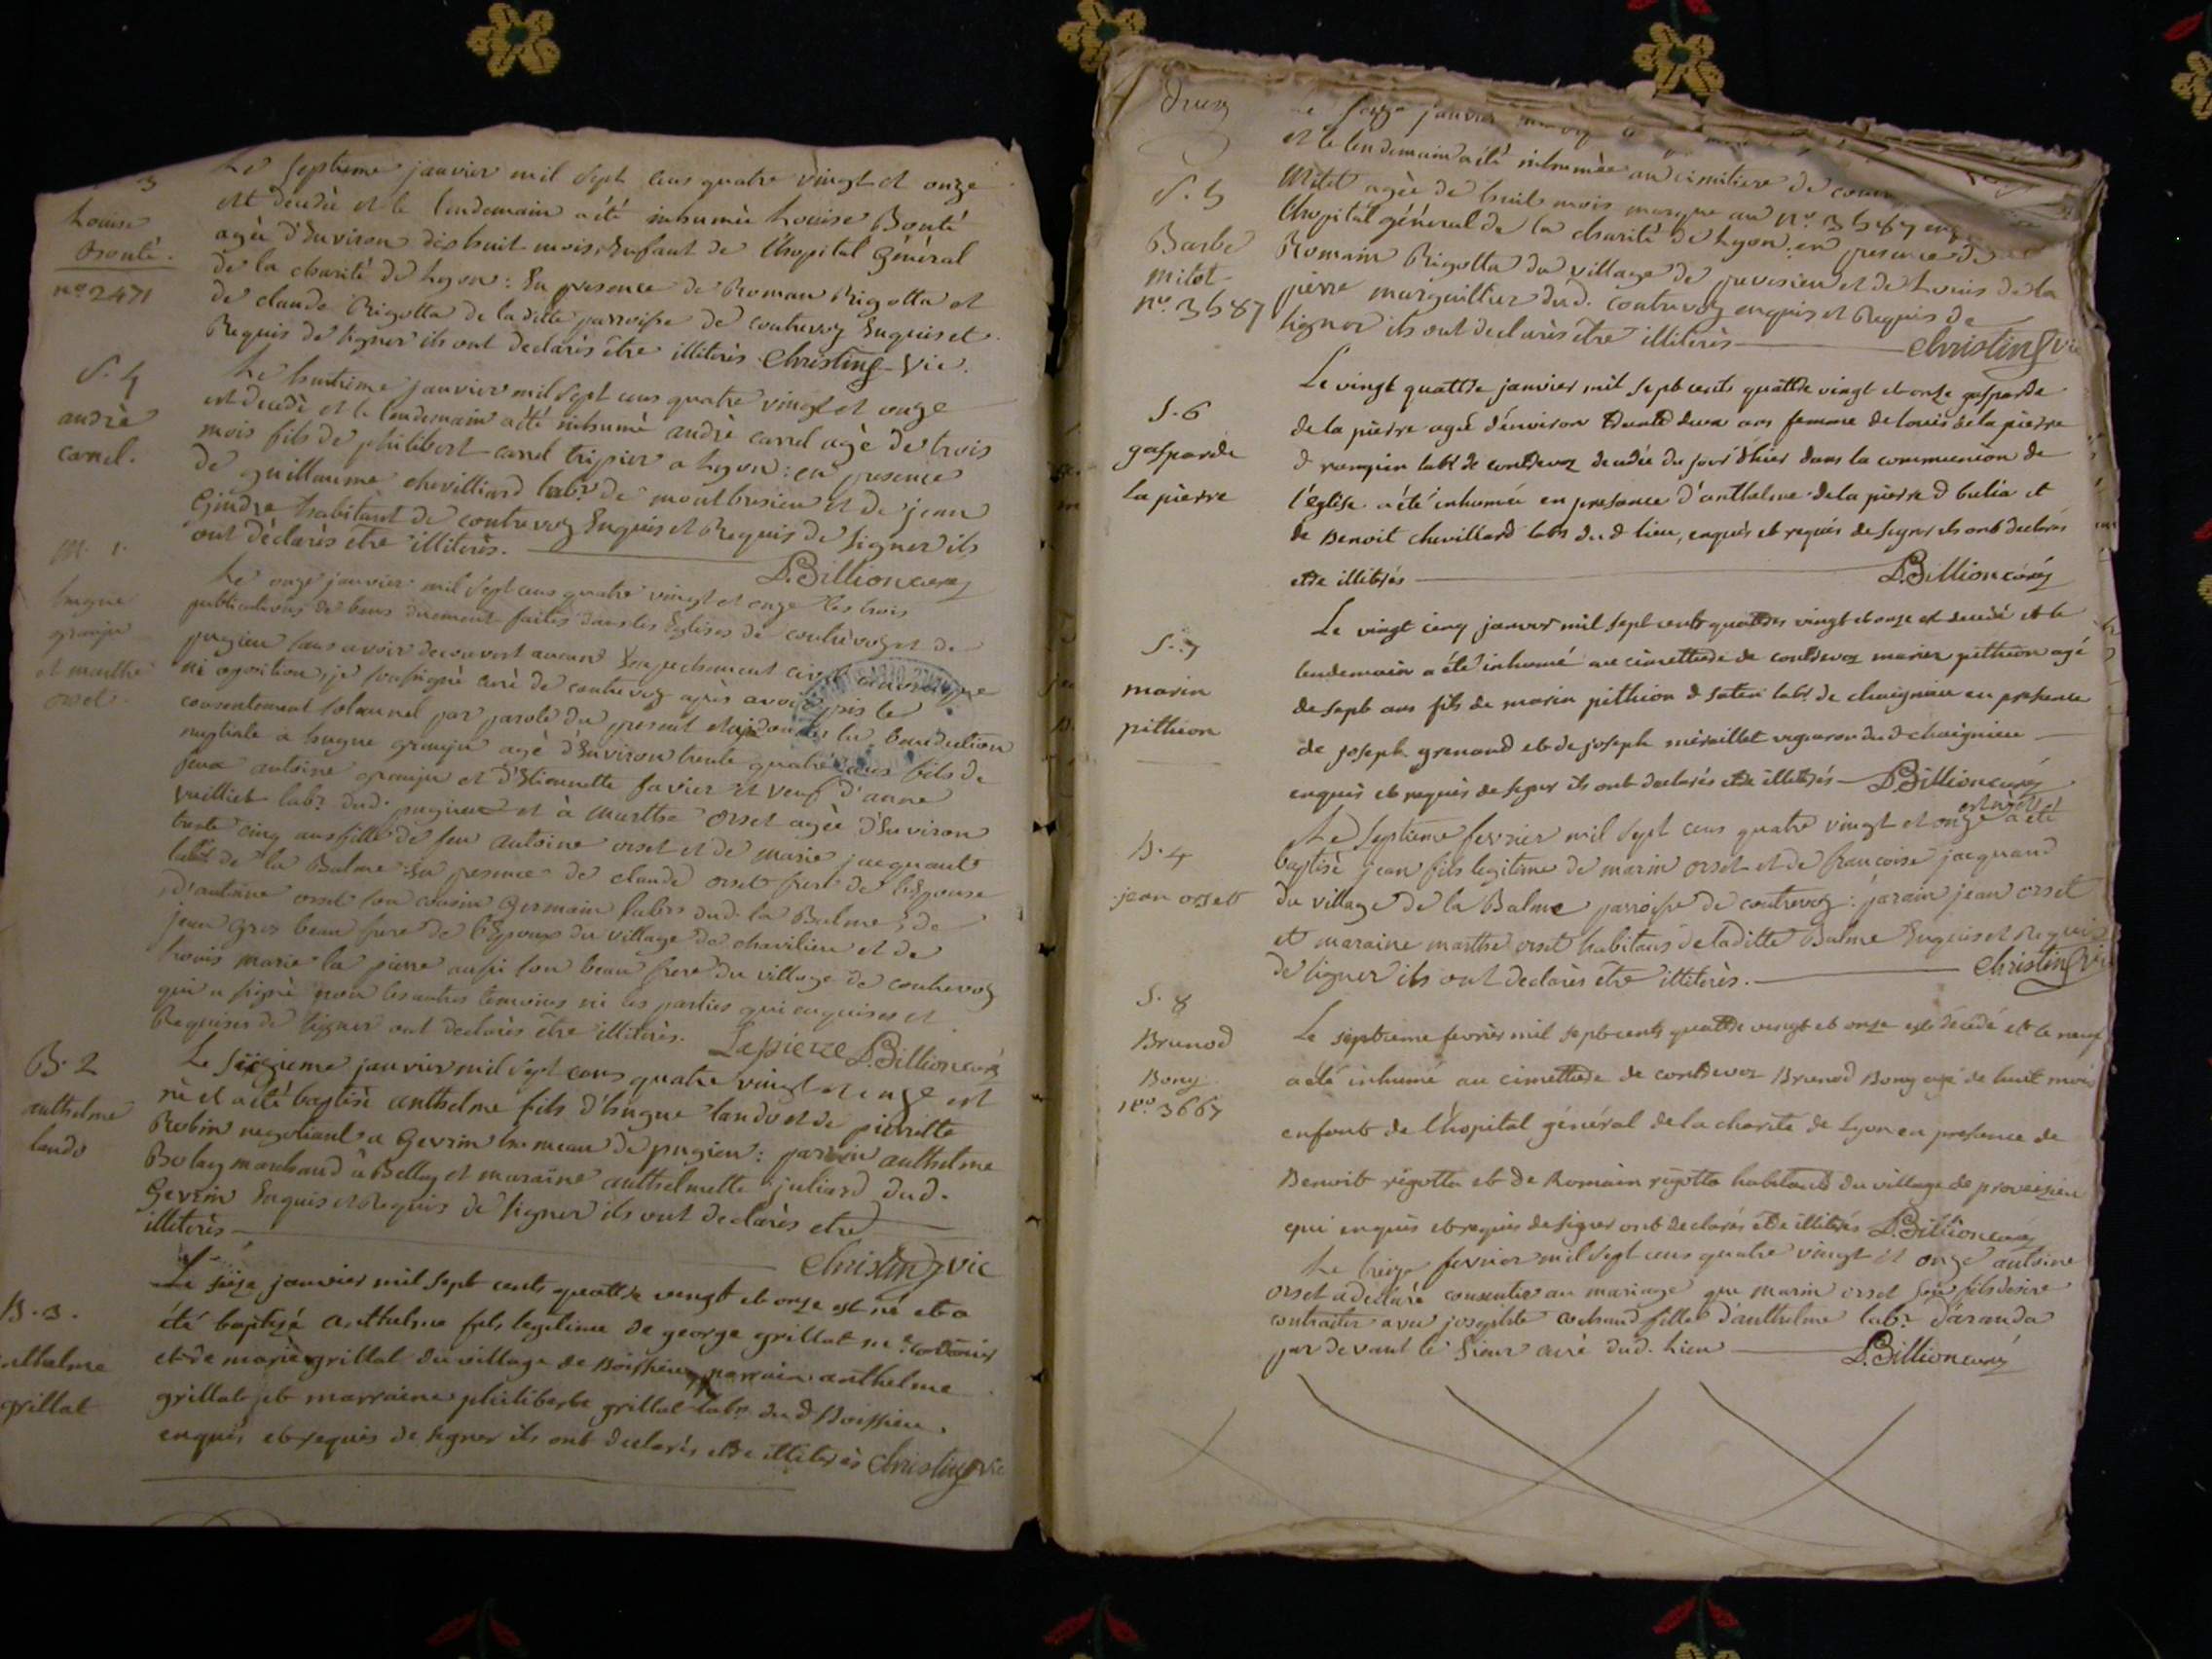 3
Louise
Bonté.
nº 2471
Le septieme janvier mil sept cens quatre vingt et onze
est decedée et le lendemain a été inhumée Louise Bonté
agée d'Environ dishuit mois, Enfant de l'hopital Général
de la charité de Lyon: En presence de Roman Rigotta et
de claude Rigotta de la ditte parroisse de contrevoz Enquis et
Requis de signer ils ont declarés être illiterés Christin Vic.
S. 4
andré
carrel.
Le huitieme janvier mil sept cens quatre vingt et onze
est decedé et le lendemain a été inhumé andré carrel agé de trois
mois fils de philibert carrel tripier a Lyon: en presence
de guillaume chevilliard labr de montbresieu et de jean
Gindre habitant de contrevoz Enquis et Requis de signer ils
ont déclarés etre illiterés.
D. Billion curé
M. 1.
hugue
granju
et marthe
orset.
Le onze janvier mil sept cens quatre vingt et onze les trois
publications de bans duement faites dans les Eglises de contrevoz et de
pugieu sans avoir decouvert aucun Empechement civil canonique
ni oposition, je soussigné curé de contrevoz après avoir pris le
consentement solemnel par parole du present et leur donné la benediction
nuptiale a hugue granju agé d'Environ trente quatre ans fils de
feux antoine granju et d'Etiennette favier et veuf d'anne
vuilliet labr dud. pugieu et à Marthe orset agée d'Environ
trente cinq ans fille de feu antoine orset et de marie jacquant
labr de la Balme En presence de claude orset frere de l'Epouse
d'antoine orset son cousin Germain labrs dud. la Balme, de
jean Gros beau frere de l'Epoux du village de chavilieu et de
Louis marie la pierre aussi son beau frere du village de contrevoz
qui a signé non les autres temoins ni les parties qui enquises et
Requises de signer ont declarés être illiterés. Lapierre D. Billion curé
B. 2
anthelme
lando
Le sizieme janvier mil sept cens quatre vingt et onze est
né et a été baptisé anthelme fils d'hugue lando et de pierrette
Robin negotiant a Gevrin hameau de pugieu: parrain anthelme
Bolay marchand à Belley et maraine anthelmette juliard dud.
Gevrin Enquis et Requis de signer ils ont declarés etre
illiterés
Christin vic
B. 3.
anthelme
grillat
Le seize janvier mil sept cents quattre vingt et onze est né et a
été baptizé anthelme fils legitime de george grillat me cordonier
et de marie grillat du village de Boissieu, parrain anthelme
grillat et marraine philiberte grillat labrs du d Boissieu.
enquis et requis de signer ils ont declarés etre illiterés Christin vic
deux
S. 5
Barbe
mitet
nº. 3587
Le seize janvier
et le lendemain a été inhumée au cimitiere de
Mitet agée de huit mois marque au nº. 3587
l'hopital général de la charité de Lyon. en presence de
Romain Rigotta du village de prevesieu et de Louis de la
pierre marguillier dud. contrevoz enquis et Requis de
signer ils ont declarés être illiterés
Christin Vic
S. 6
gasparde
la pierre
Le vingt quattre janvier mil sept cents quattre vingt et onze gasparde
de la pierre agée d'environ trente deux ans femme de louis de la pierre
labr de contrevoz decedée du jour d'hier dans la communion de
l'église a été inhumée en presance d'anthelme de la pierre et
de Benoit chevillard labrs du d lieu, enquis et requis de signer ils ont declarés
etre illiterés
D. Billion curé
S. 7
marin
pithion
Le vingt cinq janvier mil sept cents quattre vingt et onze est decedé et le
lendemain a été inhumé au cimettiere de contrevoz marin pithion agé
de sept ans fils de marin pithion labr de chaignieu en presance
de joseph grenard et de joseph miraillet vigneron du d chaignieu
enquis et requis de signer ils ont declarés etre illiterés D. Billion curé
B. 4
jean orset
Le septieme fevrier mil sept cens quatre vingt et onze est né et a été
baptisé jean fils legitime de marin orset et de francoise jacquand
du village de la Balme parroisse de contrevoz: parain jean orset
et maraine marthe orset habitans de laditte Balme Enquis et Requis
de signer ils ont declarés etre illiterés.
Christin Vic
S. 8
Brunod
Bony
nº. 3667
Le septieme fevrier mil sept cents quattre vingt et onze est decedé et le neuf
a été inhumé au cimettiere de contrevoz Brunod Bony agé de huit mois
enfant de l'hopital général de la charité de Lyon en presance de
Benoit rigotta et de Romain rigotta habitants du village de proveizieu
qui enquis et requis de signer ont declarés etre illiterés D. Billion curé
Le treize fevrier mil sept cens quatre vingt et onze antoine
orset a declaré consentir au mariage que marin orset son fils desire
contracter avec josephte cochand fille d'anthelme labr d'aranda
par devant le sieur curé dud. Lieu
D. Billion curé